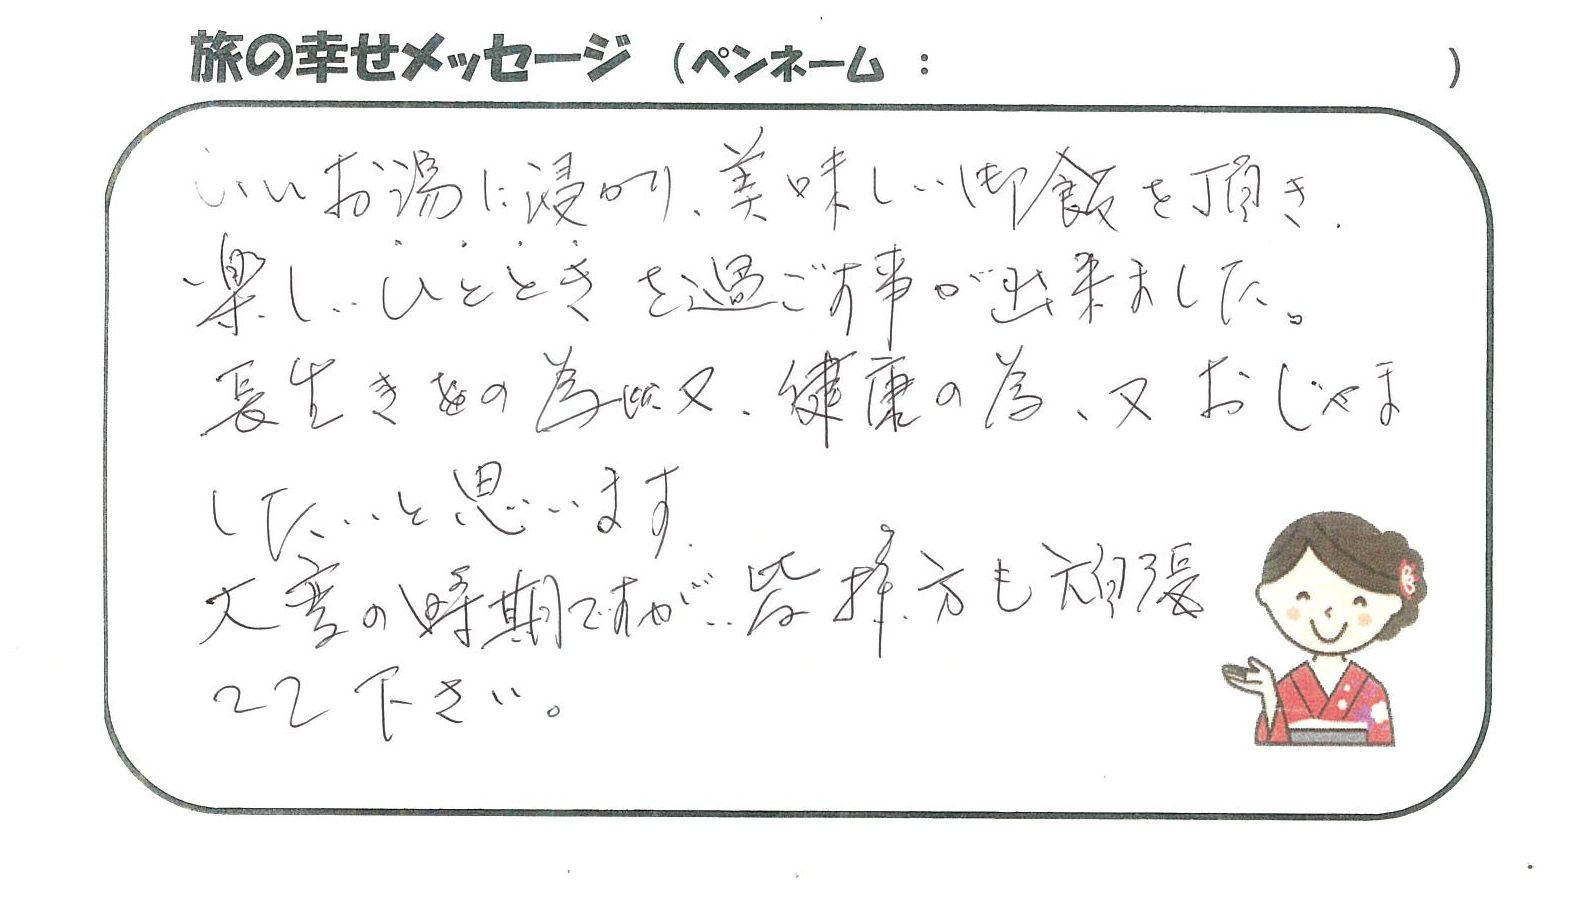 旅の幸せメッセージ (ペンネーム : )
いいお湯に浸かり、美味しい御飯を頂き、
楽しいひとときを過ごす事が出来ました。
長生きの為に又、健康の為、又おじゃま
したいと思います。
大変の時期ですが、皆様方も頑張
って下さい。